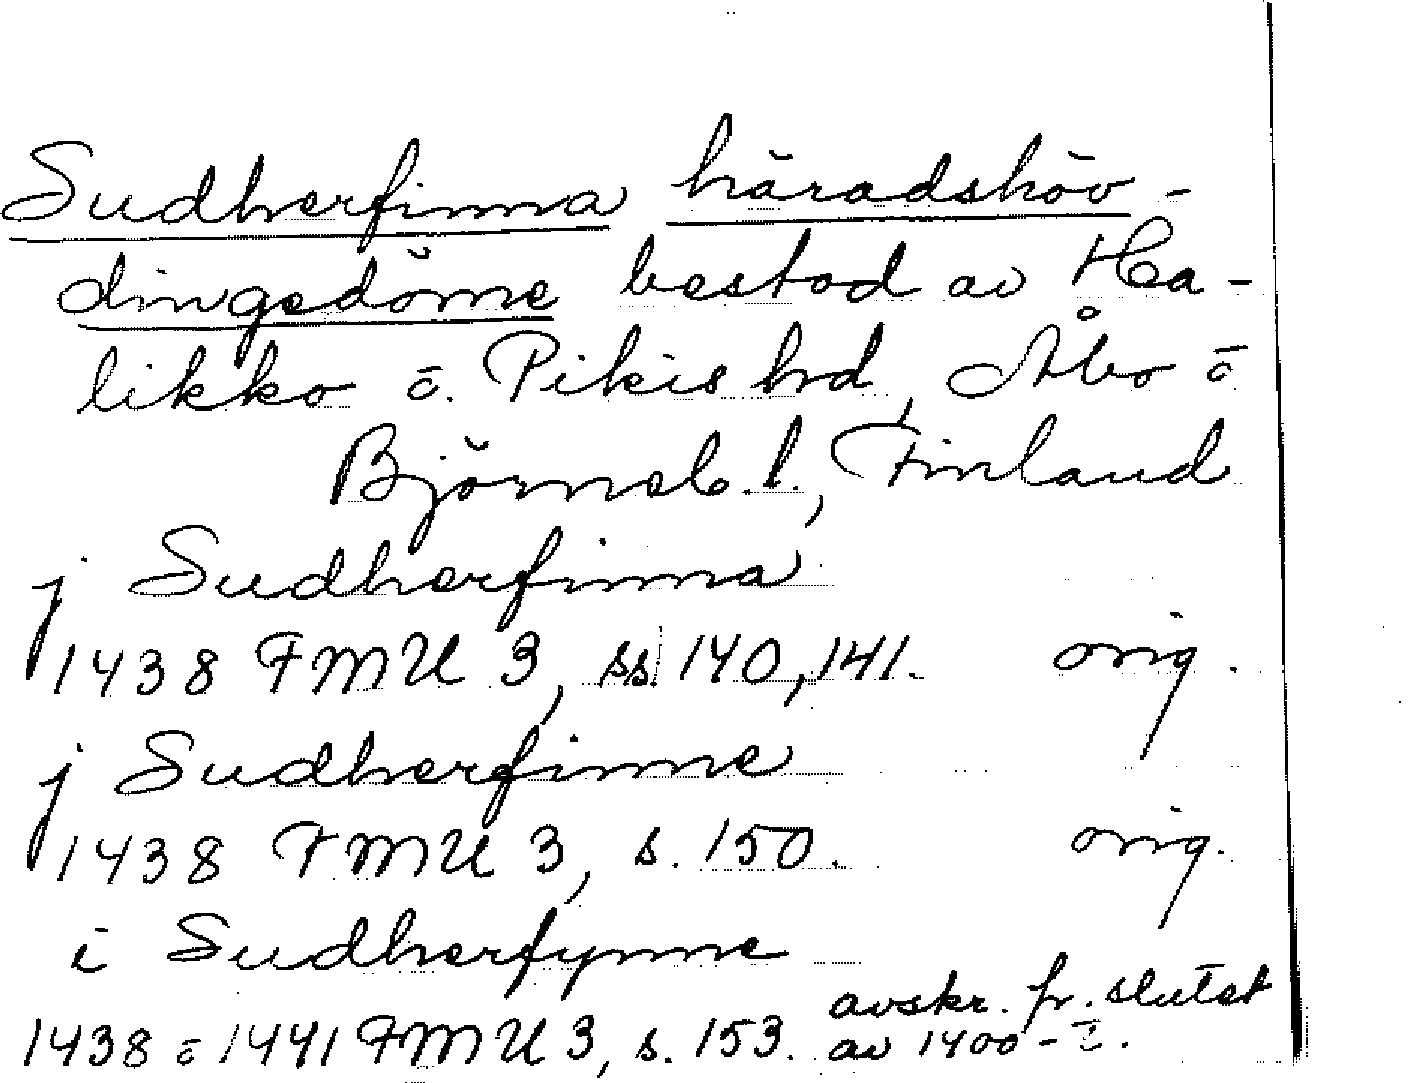 Sudherfinna häradshöv-
dingedöme bestod av Ha-
likko o. Pikis hd, Åbo o
Björneb. l., Finland
j Sudherfinna
1438 FMU 3, ss. 140, 141. orig.
j Sudherfinne
1438 FMU 3, s. 150. orig.
i Sudherfynne
1438 o 1441 FMU 3, s. 153. avskr. fr. slutet
av 1400-t.